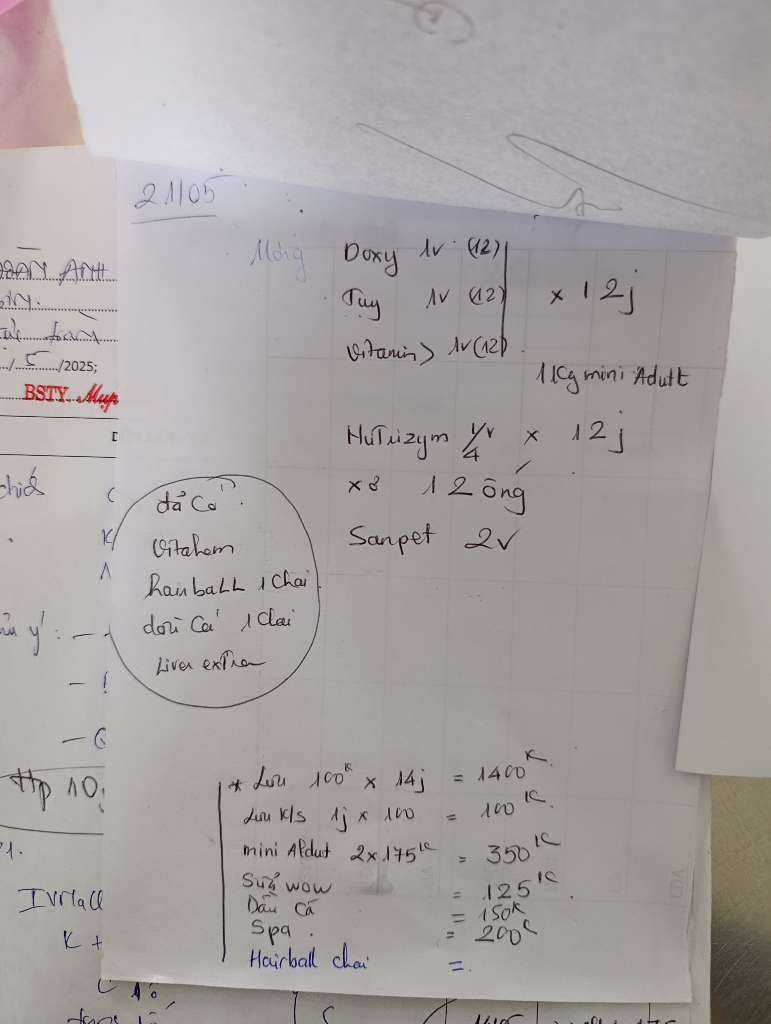 21/05
Móng Doxy 1v (12)
Tụy 1v (12) x 12j
Vitamin> 1v (12)
1Kg mini Adult
Nutrizym 1/4 v x 12j
x8 12 ống
Sanpet 2v
đã Có
Vitahem
hairball 1 Chai
1 Chai
Liver extra
* Lưu 100K x 14j = 1400K
Lưu K/S 1j x 100 = 100K
mini Aldut 2x175K = 350K
Sữa wow = 125K
Dầu Cá = 150K
Spa. = 200K
Hairball chai =
ANH
/5/2025;
BSTY.
ý: -
Hp 10
K +